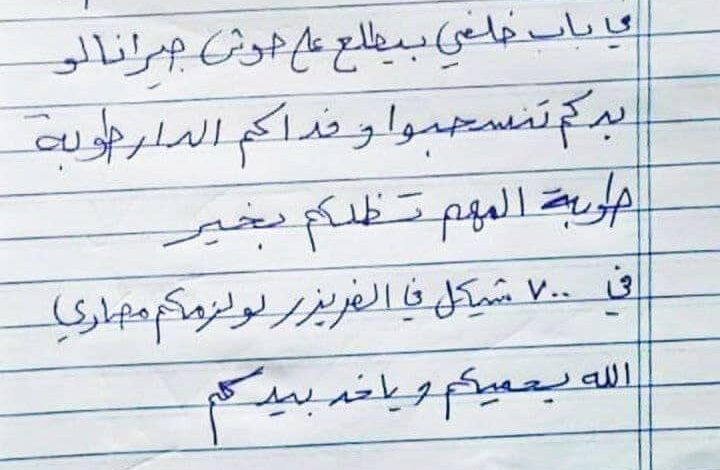 في باب خلفي بيطلع ع حوش جيرانا لو
بدكم تنسحبوا و فداكم الدار طوبة
طوبة المهم تظلكم بخير
في ٧٠٠ شيكل في الفريزر لو لزمكم مصاري
الله يحميكم و ياخد بيدكم